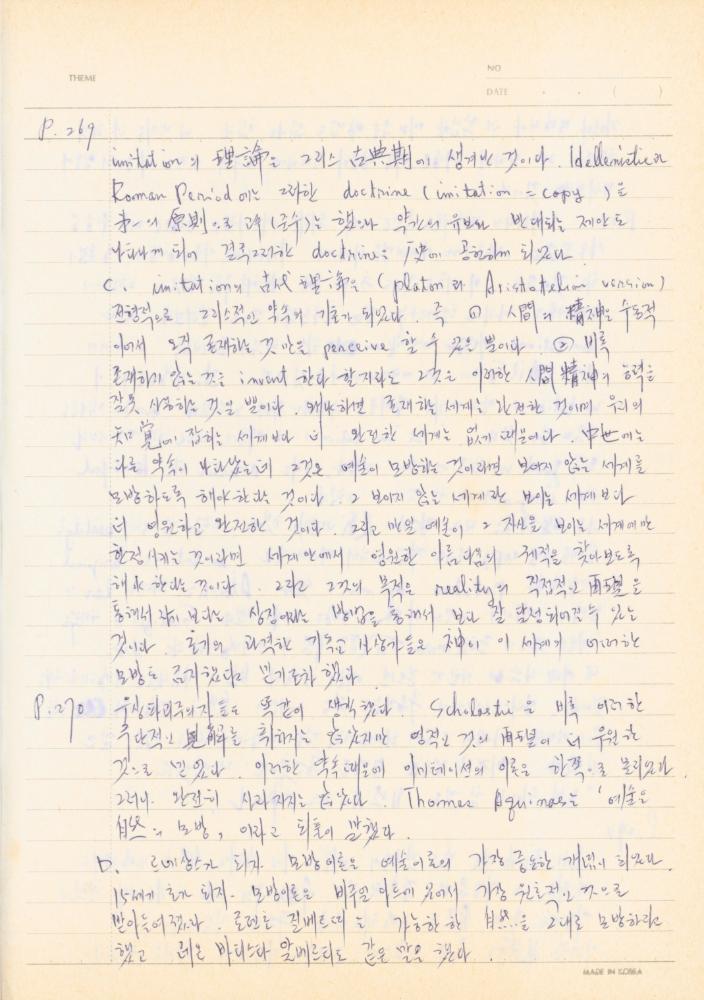 THEME
NO
DATE . . ( )
P. 269
imitation의 理論은 그리스 古典期에 생겨난 것이다. Hellenistic과
Roman Period에는 그러한 doctrine (imitation = copy)을
第一의 原則으로 (준수)는 했으나 약간의 유보와 반대되는 제안도
나타나게 되어 결국 그러한 doctrine는 공헌하게 되었다
C. imitation의 古代 理論은 (platon과 Aristotelian version)
전형적으로 그리스적인 약속의 기초가 되었다 즉 ① 人間의 精神은 수동적
이어서 오직 존재하는 것 만을 perceive 할 수 있을 뿐이다 ② 비록
존재하지 않는 것을 invent 한다 할지라도 그것은 이러한 人間精神의 능력을
잘못 사용하는 것일 뿐이다. 왜냐하면 존재하는 세계는 완전한 것이며 우리의
知覚에 잡히는 세계보다 더 완전한 세계는 없기 때문이다. 中世에는
다른 약속이 나타났는데 그것은 예술이 모방하는 것이라면 보이지 않는 세계를
모방하도록 해야 한다는 것이다. 그 보이지 않는 세계란 보이는 세계보다
더 영원하고 완전한 것이다. 그리고 만일 예술이 그 자신을 보이는 세계에만
한정시키는 것이라면 세계안에서 영원한 아름다움의 궤적을 찾아보도록
해야 한다는 것이다. 그리고 그것의 목적은 reality의 직접적인 再現을
통해서 보다는 상징이라는 방법을 통해서 보다 잘 달성되어질 수 있는
것이다. 초기의 과격한 기독교 사상가들은 神이 이 세계의 어떠한
모방도 금지했다고 믿기조차 했다.
P. 270 우상파괴주의자들도 똑같이 생각했다. Scholastic은 비록 이러한
극단적인 見解를 취하지는 않았지만 영적인 것의 再現이 더 우월한
것으로 믿었다. 이러한 약속 때문에 이미테이션의 이론은 한쪽으로 몰리었다.
그러나 완전히 사라지지는 않았다. Thomas Aquinas는 '예술은
自然의 모방, 이라고 되풀이 말했다.
D. 르네상스가 되자 모방이론은 예술이론의 가장 중요한 개념이 되었다.
15세기 초가 되자. 모방이론은 비쥬얼 아트에 있어서 가장 원초적인 것으로
받아들여졌다. 로렌초 길베르띠는 가능한 한 自然을 그대로 모방하라고
했고 레온 바티스타 알베르티도 같은 말을 했다.
MADE IN KOREA